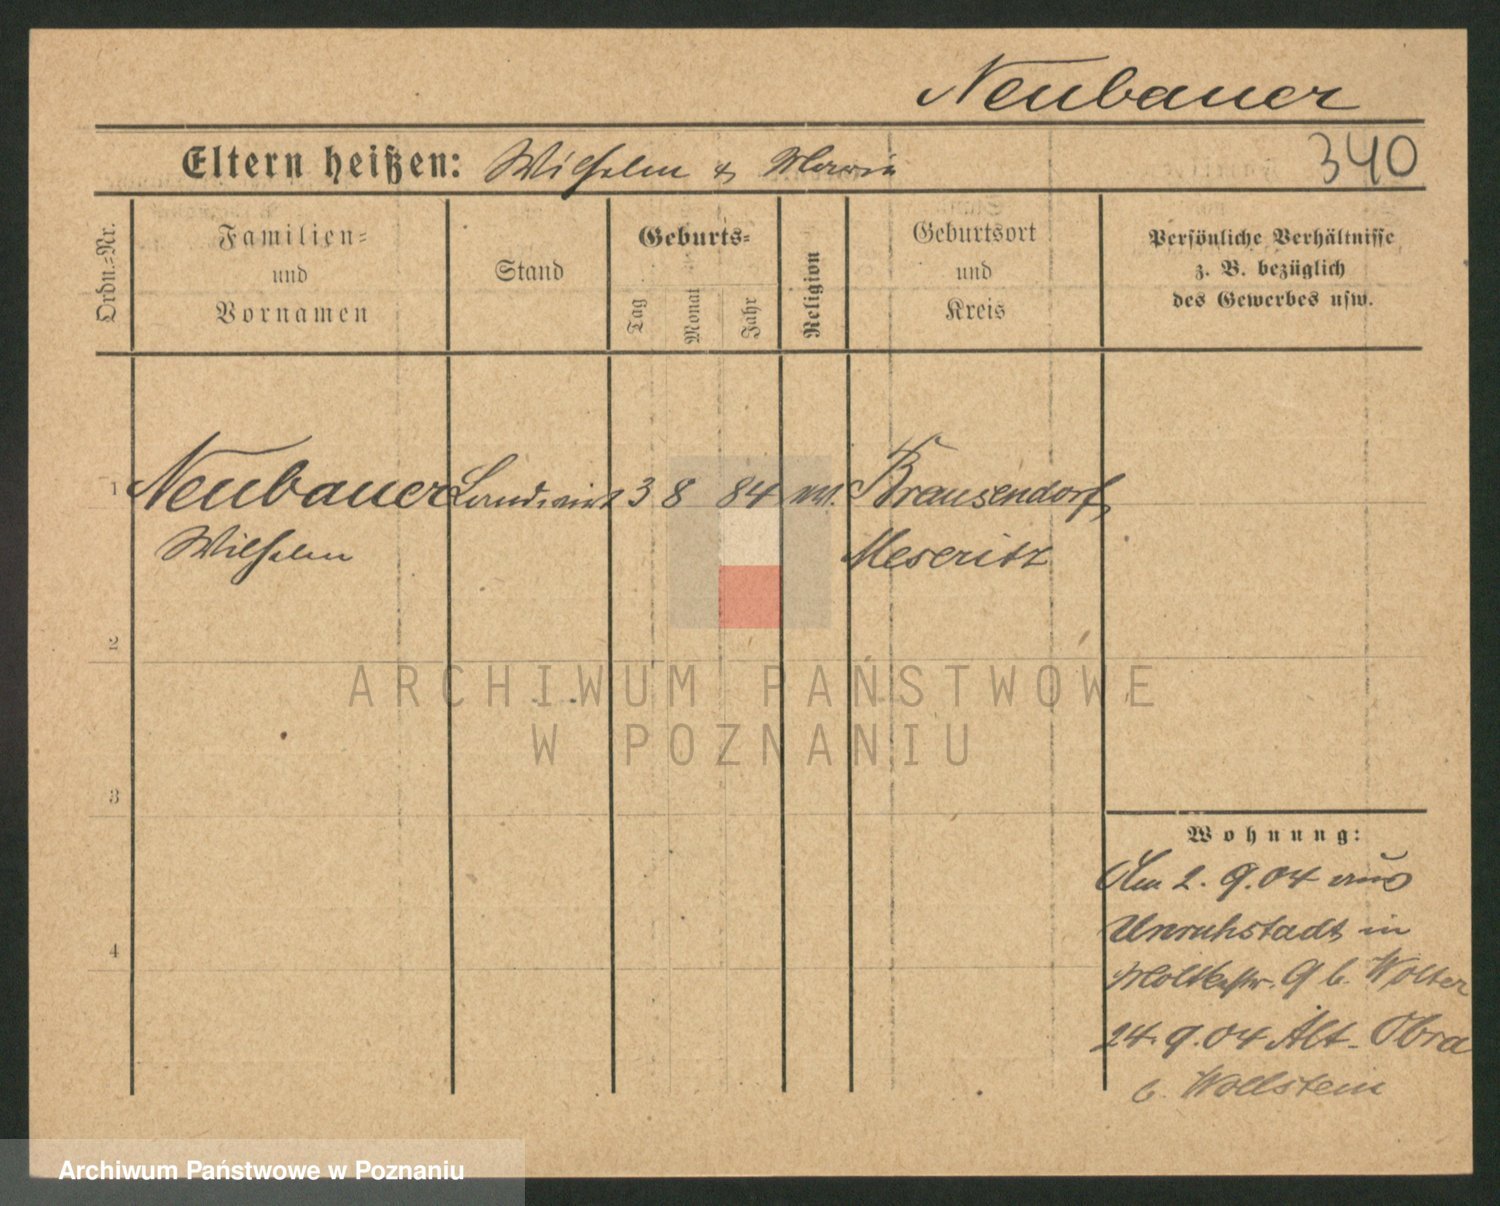 Neubauer
Eltern heißen: Wilhelm & Marie
340
Ordn.-Nr.
Familien-
und
Vornamen
Stand
Geburts-
Tag
Monat
Jahr
Religion
Geburtsort
und
Kreis
Persönliche Verhältnisse
z. B. bezüglich
des Gewerbes usw.
1 Neubauer Landwirt 3 8 84 Brausendorf,
Wilhelm Meseritz
2
3
4
Wohnung:
Am 2. 9. 04 aus
Unruhstadt in
Moltkestr. 9 b. Wolter
24. 9. 04 Alt-Obra
b. Wollstein
ARCHIWUM PAŃSTWOWE
W POZNANIU
Archiwum Państwowe w Poznaniu